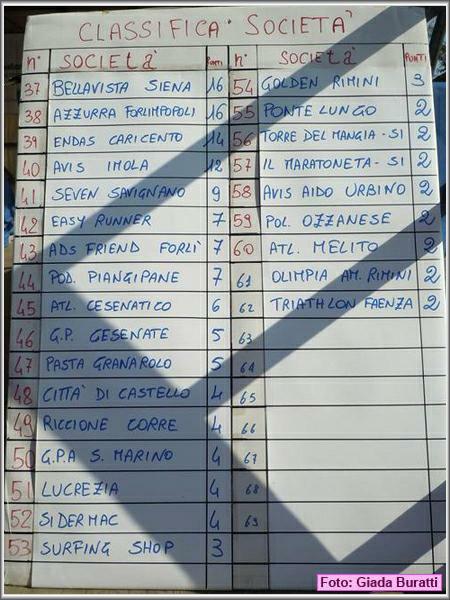 CLASSIFICA SOCIETA'
n° SOCIETà PUNTI
37 BELLAVISTA SIENA 16
38 AZZURRA FORLIMPOPOLI 16
39 ENDAS CARICENTO 14
40 AVIS IMOLA 12
41 SEVEN SAVIGNANO 9
42 EASY RUNNER 7
43 ADS FRIEND FORLI' 7
44 POD. PIANGIPANE 7
45 ATL. CESENATICO 6
46 G.P. CESENATE 5
47 PASTA GRANAROLO 5
48 CITTA' DI CASTELLO 4
49 RICCIONE CORRE 4
50 G.P.A S. MARINO 4
51 LUCREZIA 4
52 SIDERMAC 4
53 SURFING SHOP 3
n° SOCIETà PUNTI
54 GOLDEN RIMINI 3
55 PONTE LUNGO 2
56 TORRE DEL MANGIA - SI 2
57 IL MARATONETA - SI 2
58 AVIS AIDO URBINO 2
59 POL. OZZANESE 2
60 ATL. MELITO 2
61 OLIMPIA AM. RIMINI 2
62 TRIATHLON FAENZA 2
63
64
65
66
67
68
69
Foto: Giada Buratti